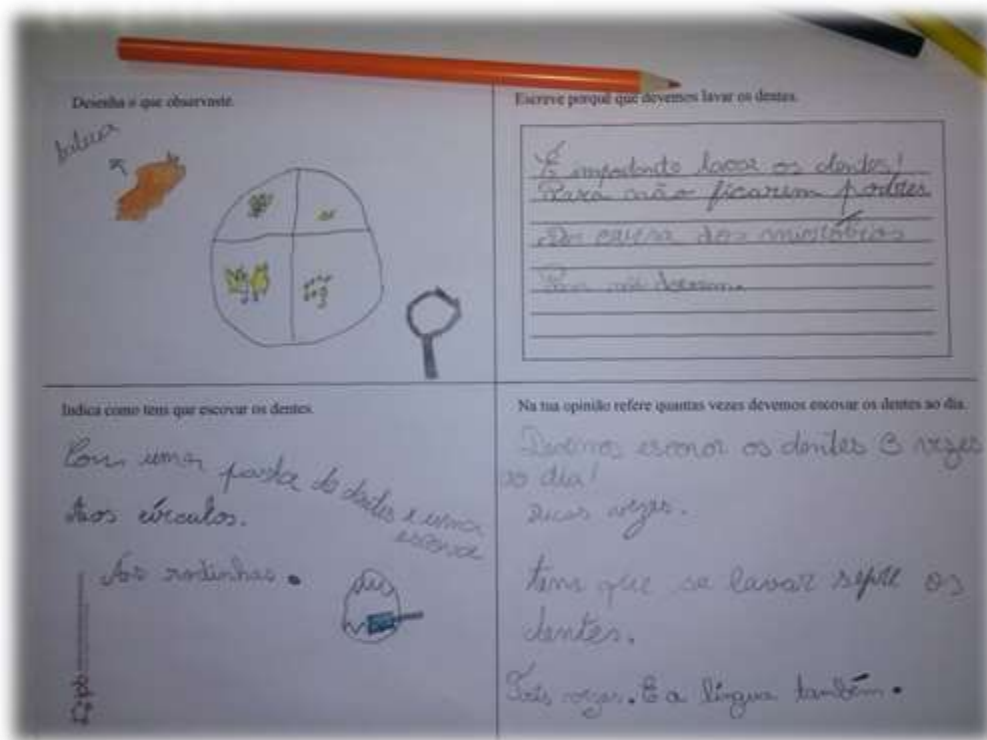 Desenha o que observaste.
Escreve porquê que devemos lavar os dentes.
É importante lavar os dentes!
Para não ficarem podres
Por causa dos micróbios
Para não
Indica como tens que escovar os dentes.
Com uma pasta de dentes e uma
escova
Aos círculos.
Às rodinhas.
Na tua opinião refere quantas vezes devemos escovar os dentes ao dia.
Devemos escovar os dentes 3 vezes
ao dia!
Duas vezes.
tens que se lavar sepre os
dentes.
Três vezes. E a língua também.